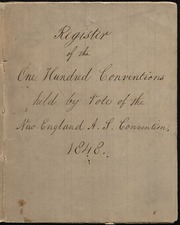 Register
of the
One Hundred Conventions
held by Vote of the
New England A. S. Convention,
1843.